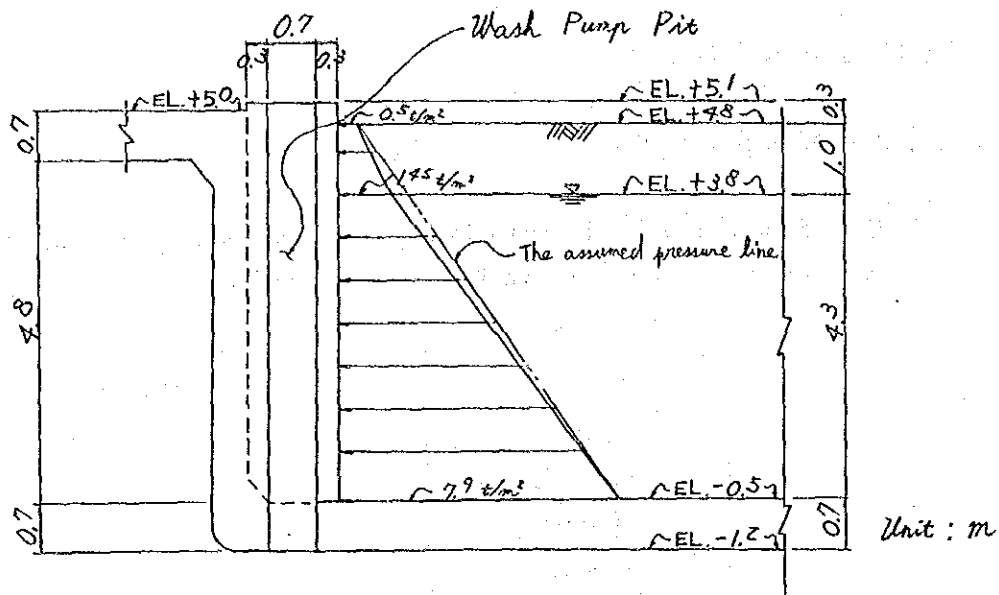 0.7
Wash Pump Pit
0.3
0.3
EL.+5.0
EL.+5.1
0.3
0.5 t/m²
EL.+4.8
0.7
1.0
1.45 t/m²
EL.+3.8
The assumed pressure line
4.8
4.3
7.9 t/m²
EL.-0.5
0.7
0.7
EL.-1.2
Unit : m